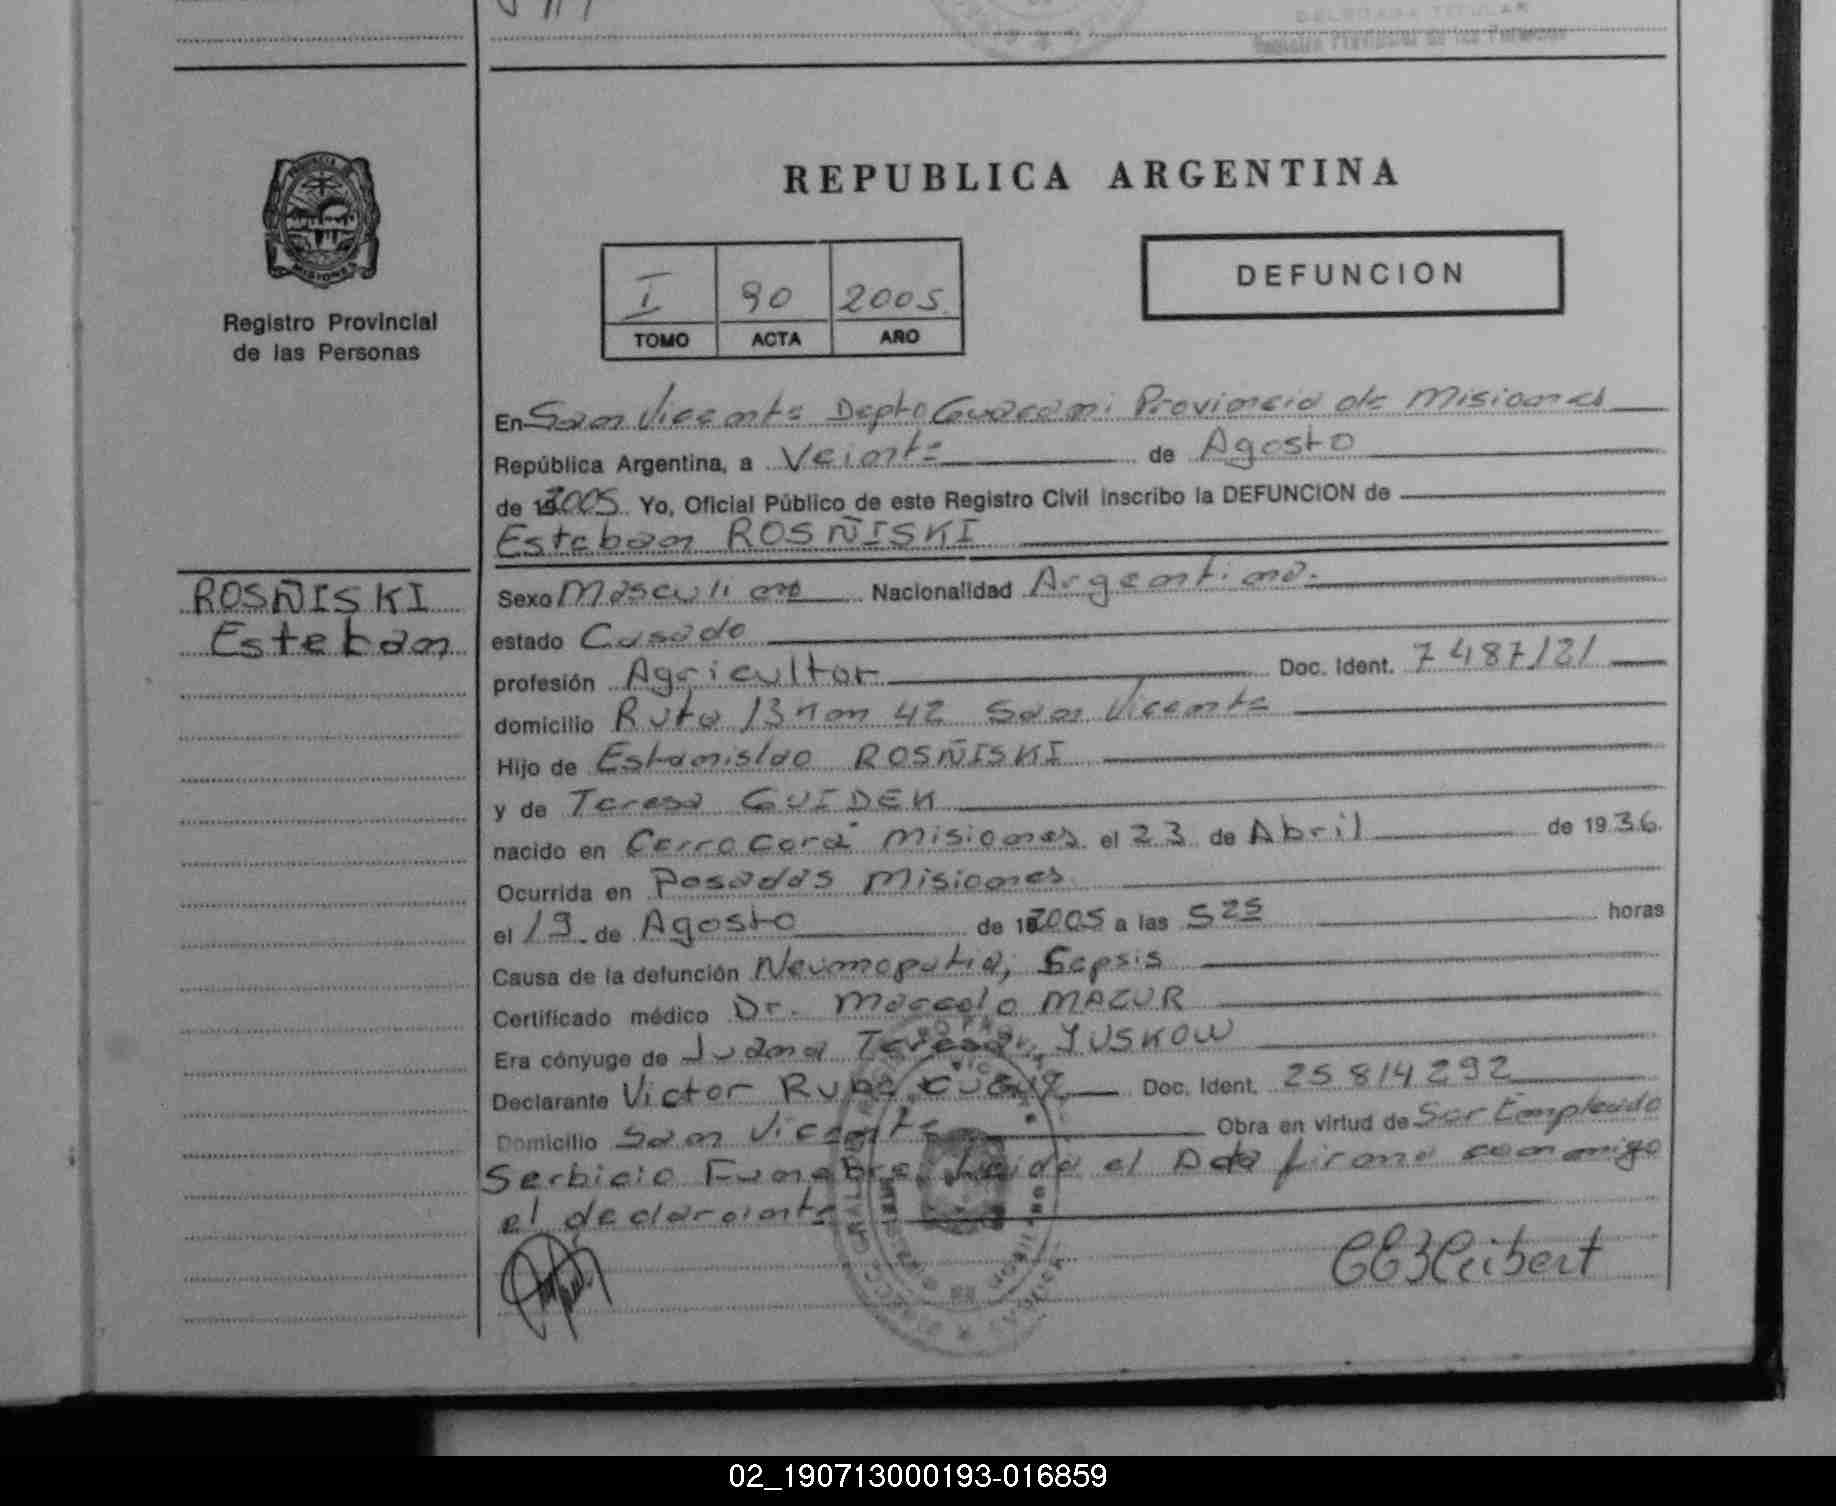 DELEGADA TITULAR
Registro Provincial de las Personas
REPUBLICA ARGENTINA
PROVINCIA DE
MISIONES
Registro Provincial
de las Personas
I 90 2005
TOMO ACTA AÑO
DEFUNCION
En San Vicente Depto Guarani Provincia de Misiones
República Argentina, a Veinte de Agosto
de 192005 Yo, Oficial Público de este Registro Civil inscribo la DEFUNCION de
Esteban ROSÑISKI
ROSÑISKI
Esteban
Sexo Masculino Nacionalidad Argentina
estado Casado
profesión Agricultor Doc. Ident. 7487121
domicilio Ruta 13 Km 42 San Vicente
Hijo de Estanislao ROSÑISKI
y de Teresa GUIDEK
nacido en Cerro Corá Misiones el 23 de Abril de 1936.
Ocurrida en Posadas Misiones
el 19 de Agosto de 192005 a las 525 horas
Causa de la defunción Neumopatia, Sepsis
Certificado médico Dr. Marcelo MAZUR
Era cónyuge de Juana Teresa YUSKOW
Declarante Victor Doc. Ident. 25814292
Domicilio San Vicente Obra en virtud de Ser Empleado
Serbicio Funebre, Leida el Acta firma conmigo
el declarainte
02_190713000193-016859